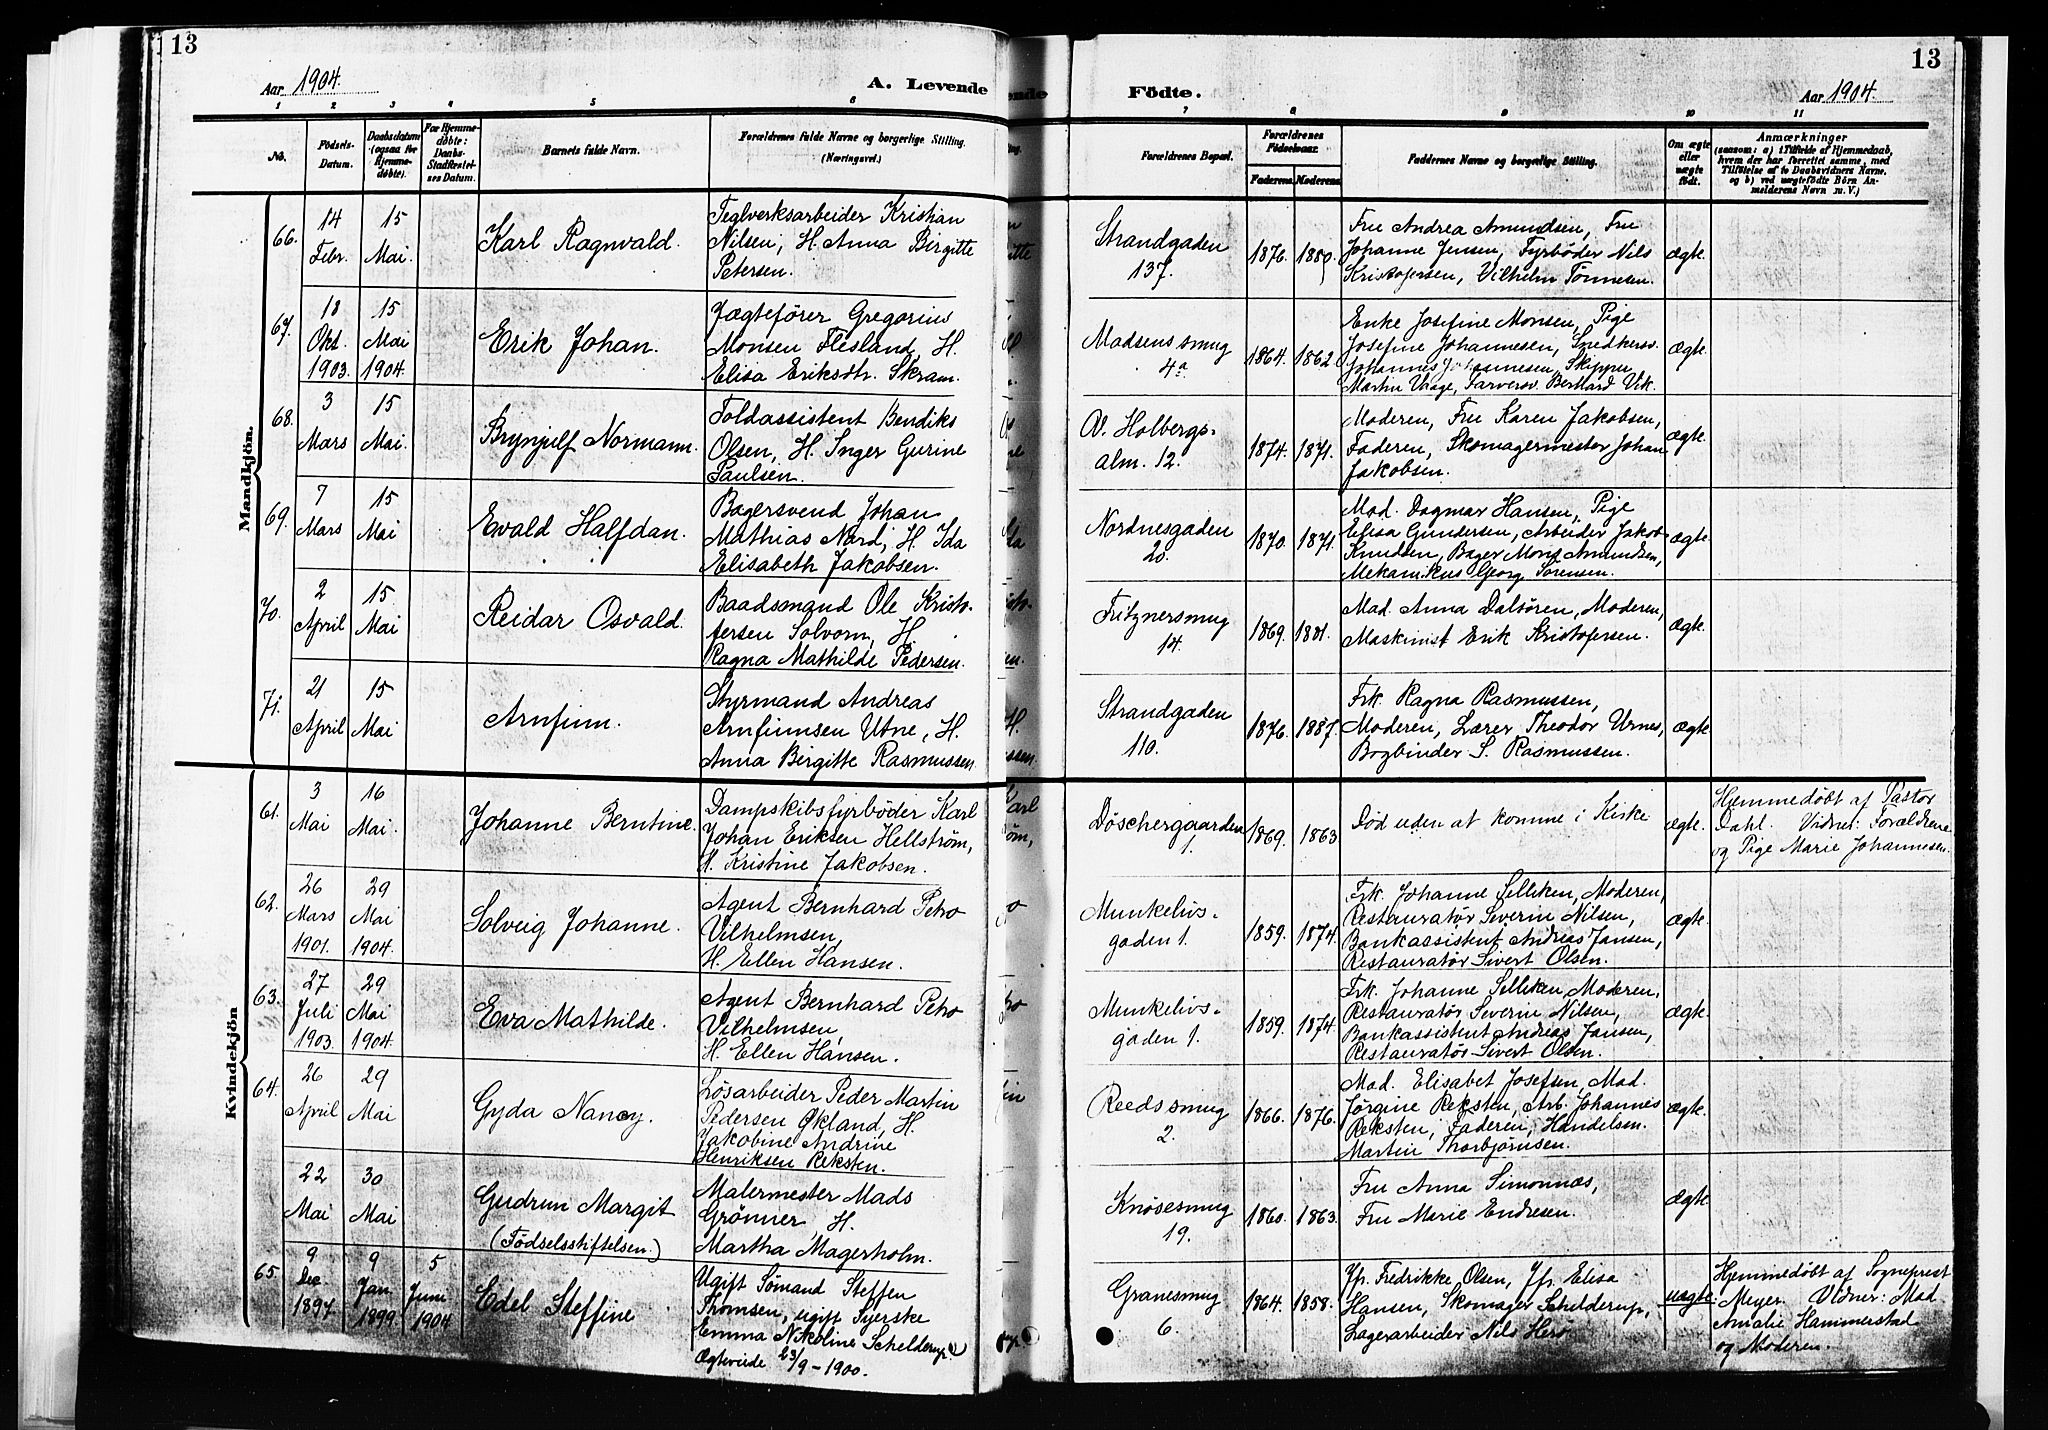 13
13
Aar 1904.
A. Levende
Födte.
Aar 1904.
1 2 3 4 5 6 7 8 9 10 11
No.
Födsels-Datum.
Daabsdatum (ogsaa for Hjemme-döbte).
For Hjemme-döbte: Daabs-Stadfæstel-ses Datum.
Barnets fulde Navn.
Forældrenes fulde Navne og borgerlige Stilling. (Næringsvei.)
Forældrenes Bopæl.
Forældrenes Födselsaar.
Faderens. Moderens.
Faddernes Navne og borgerlige Stilling.
Om ægte eller uægte födt.
Anmærkninger
(saasom: a) i Tilfælde af Hjemmedaab,
hvem der har forrettet samme, med
Tilföielse af to Daabsvidners Navne,
og b) ved uægtefödte Börn An-
melderens Navn m. V.)
Mandkjön.
66.
14 Febr.
15 Mai.
Karl Ragnvald.
Teglverksarbeider Kristian
Nilsen, H. Anna Birgitte
Petersen.
Strandgaden
137.
1876. 1880.
Fru Andrea Amundsen, Fru
Johanne Jensen, Fyrbøder Nils
Kristofersen, Vilhelm Tønnesen.
ægte.
67.
18 Okt. 1903.
15 Mai 1904.
Erik Johan.
Jægtefører Gregorius
Monsen Flesland, H.
Elisa Eriksdtr. Skram.
Madsens smug
4a.
1864. 1862.
Enke Josefine Monsen, Pige
Josefine Johannesen, Snedkersv.
Johannes Johannesen, Skipper
Martin Vaage, Farversv. Bernhard Vik.
ægte.
68.
3 Mars
15 Mai.
Brynjulf Normann.
Toldassistent Bendiks
Olsen, H. Inger Gurine
Paulsen.
Holbergs-
alm. 12.
1874. 1871.
Moderen, Fru Karen Jakobsen,
Faderen, Skomagermester Johan
Jakobsen.
ægte.
69.
7 Mars
15 Mai
Evald Halfdan.
Bagersvend Johan
Mathias Nord, H. Ida
Elisabeth Jakobsen.
Nordnesgaden
20.
1870. 1871.
Mad. Dagmar Hansen, Pige
Elisa Gundersen, Arbeider Jakob
Knudsen, Bager Mons Amundsen,
Mekanikus Georg Sørensen.
ægte.
70.
2 April
15 Mai
Reidar Osvald.
Baadsmand Ole Kristo-
fersen Solvorn, H.
Ragna Mathilde Pedersen.
Fritznersmug
14.
1869. 1881.
Mad. Anna Dalsøren, Moderen,
Maskinist Erik Kristofersen.
ægte.
71.
21 April
15 Mai
Arnfinn.
Styrmand Andreas
Arnfinnsen Utne, H.
Anna Birgitte Rasmussen.
Strandgaden
110.
1876. 1887.
Frk. Ragna Rasmussen,
Moderen, Lærer Theodor Urnes,
Bogbinder S. Rasmussen.
ægte.
Kvindekjön
61.
3 Mai
16 Mai.
Johanne Berntine.
Dampskibsfyrbøder Karl
Johan Eriksen Hellstrøm,
H. Kristine Jakobsen.
Døschergaarden
1.
1869. 1863.
Død uden at komme i Kirke
ægte.
Hjemmedøbt af Pastor
Dahl. Vidner: Forældrene
og Pige Marie Johannesen.
62.
26 Mars 1901.
29 Mai 1904.
Solveig Johanne.
Agent Bernhard Petro
Vilhelmsen,
H. Ellen Hansen.
Munkelivs-
gaden 1.
1859. 1874.
Frk. Johanne Selliken, Moderen,
Restauratør Severin Nilsen,
Bankassistent Andreas Jansen,
Restauratør Sivert Olsen.
ægte.
63.
27 Juli 1903.
29 Mai 1904.
Eva Mathilde.
Agent Bernhard Petro
Vilhelmsen
H. Ellen Hansen.
Munkelivs-
gaden 1.
1859. 1874.
Frk. Johanne Selliken, Moderen,
Restauratør Severin Nilsen,
Bankassistent Andreas Jansen,
Restauratør Sivert Olsen.
ægte.
64.
26 April
29 Mai
Gyda Nancy.
Løsarbeider Peder Martin
Pedersen Økland, H.
Jakobine Andrine
Henriksen Reksten.
Reedssmug
2.
1866. 1876.
Mad. Elisabet Josefsen, Mad.
Jørgine Reksten, Arb. Johannes
Reksten, Faderen, Handelsm.
Martin Thorbjørnsen.
ægte.
22 Mai
30 Mai
Gudrun Margit
(Fødselsstiftelsen.)
Malermester Mads
Grønner, H.
Martha Magerholm.
Knøsesmug
19.
1860. 1863.
Fru Anna Simonnæs,
Fru Marie Endresen.
ægte.
65.
9 Dec. 1897.
9 Jan. 1899
5 Juni 1904
Edel Steffine
Ugift Sømand Steffen
Thomsen, ugift Syerske
Emma Nikoline Schelderup.
Ægteviede 23/9 - 1900.
Granesmug
6.
1864. 1858.
Jfr. Fredrikke Olsen, Jfr. Elisa
Hansen, Skomager Schelderup,
Lagerarbeider Nils Herø
uægte.
Hjemmedøbt af Sogneprest
Meyer. Vidner: Mad.
Amalie Hammerstad
og Moderen.